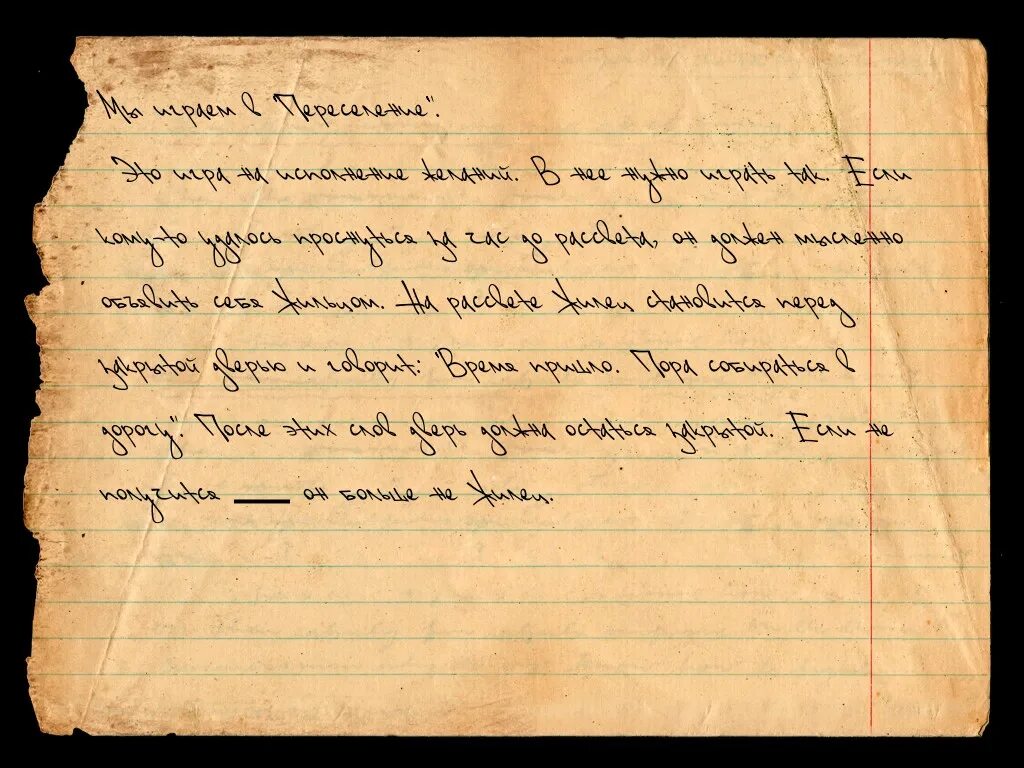 Мы играем в "Переселение".
Это игра на исполнение желаний. В нее нужно играть так. Если
кому-то удалось проснуться за час до рассвета, он должен мысленно
объявить себя Жильцом. На рассвете Жилец становится перед
закрытой дверью и говорит: "Время пришло. Пора собираться в
дорогу". После этих слов дверь должна остаться закрытой. Если не
получится — он больше не Жилец.